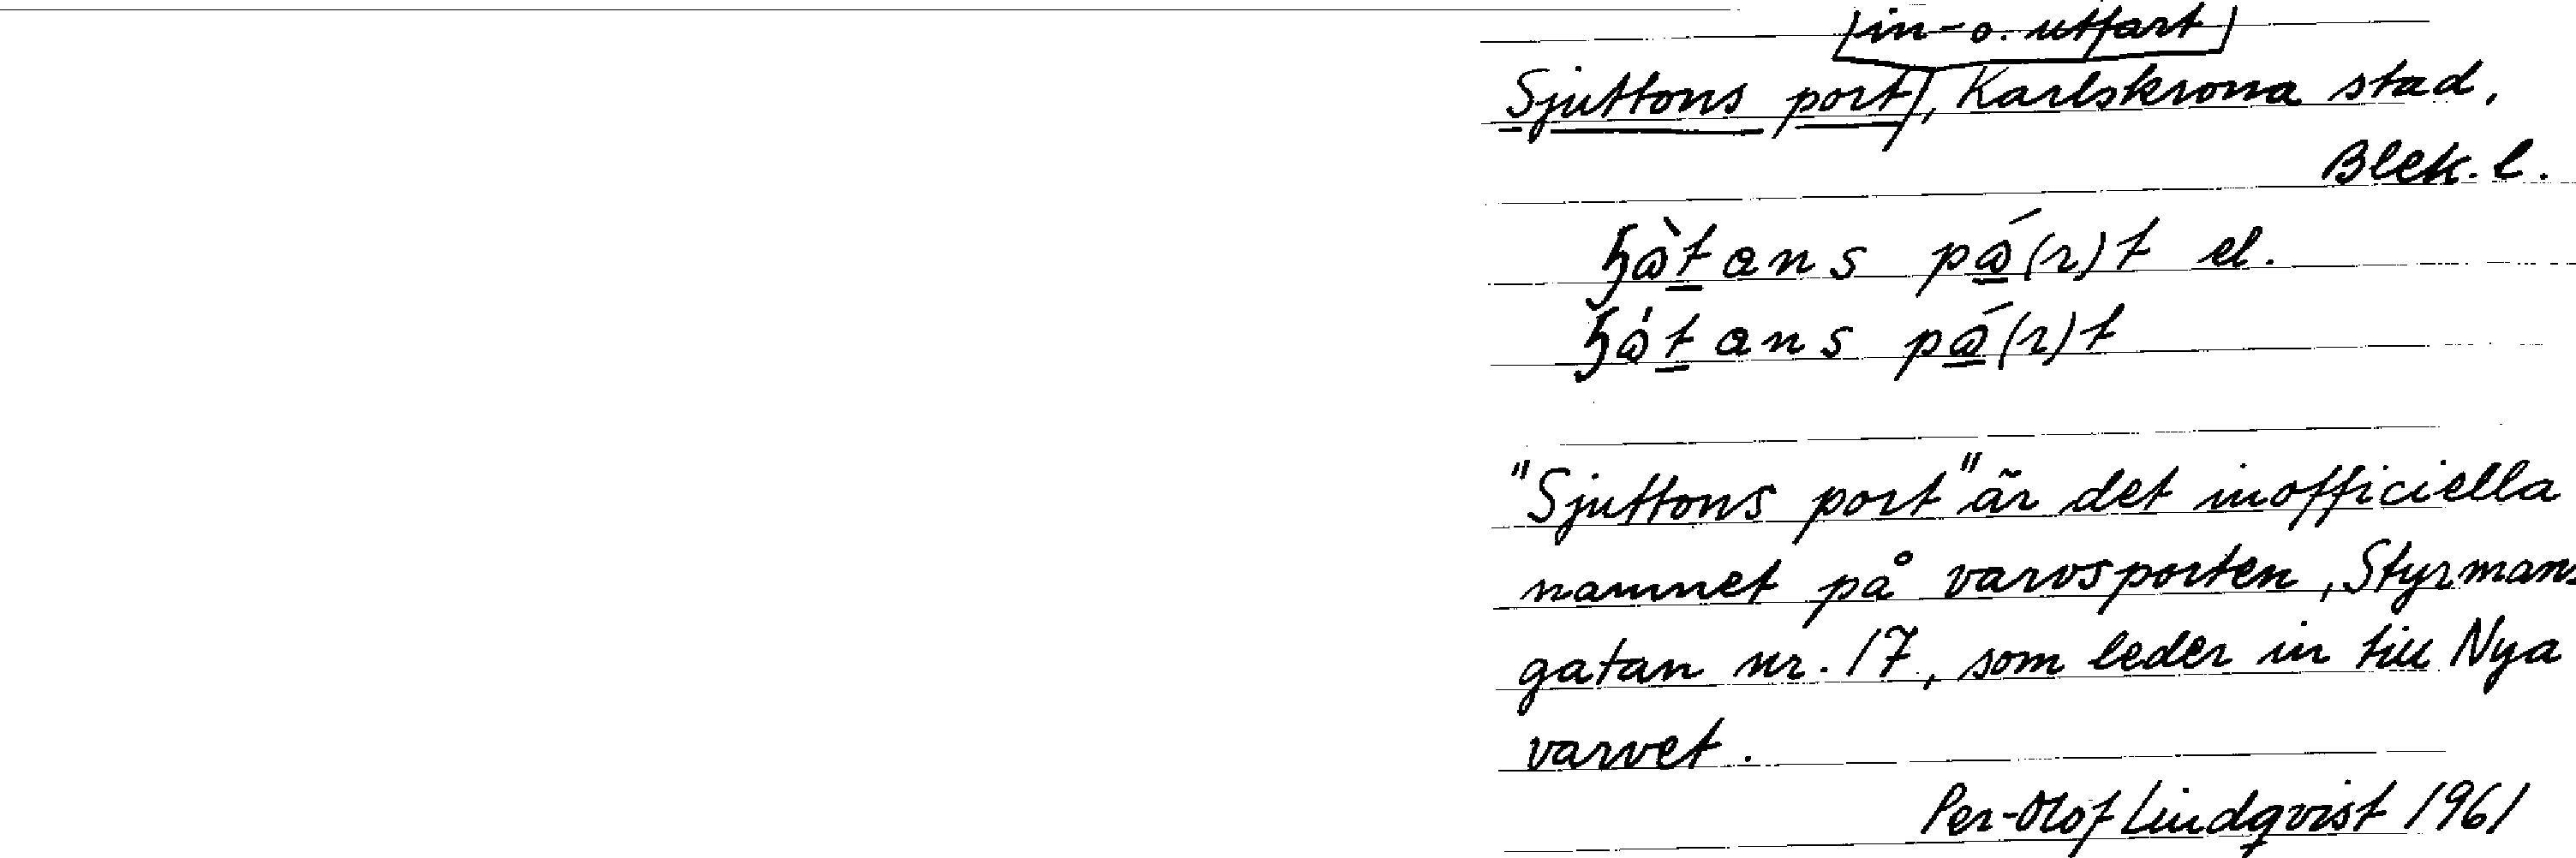 /in- o. utfart/
Sjuttons port/, Karlskrona stad,
Blek. l.
ɧàtans pá(r)t el.
ɧátans pá(r)t
"Sjuttons port" är det inofficiella
namnet på varvsporten, Styrmans
gatan nr. 17, som leder in till Nya
varvet.
Per-Olof Lindqvist 1961